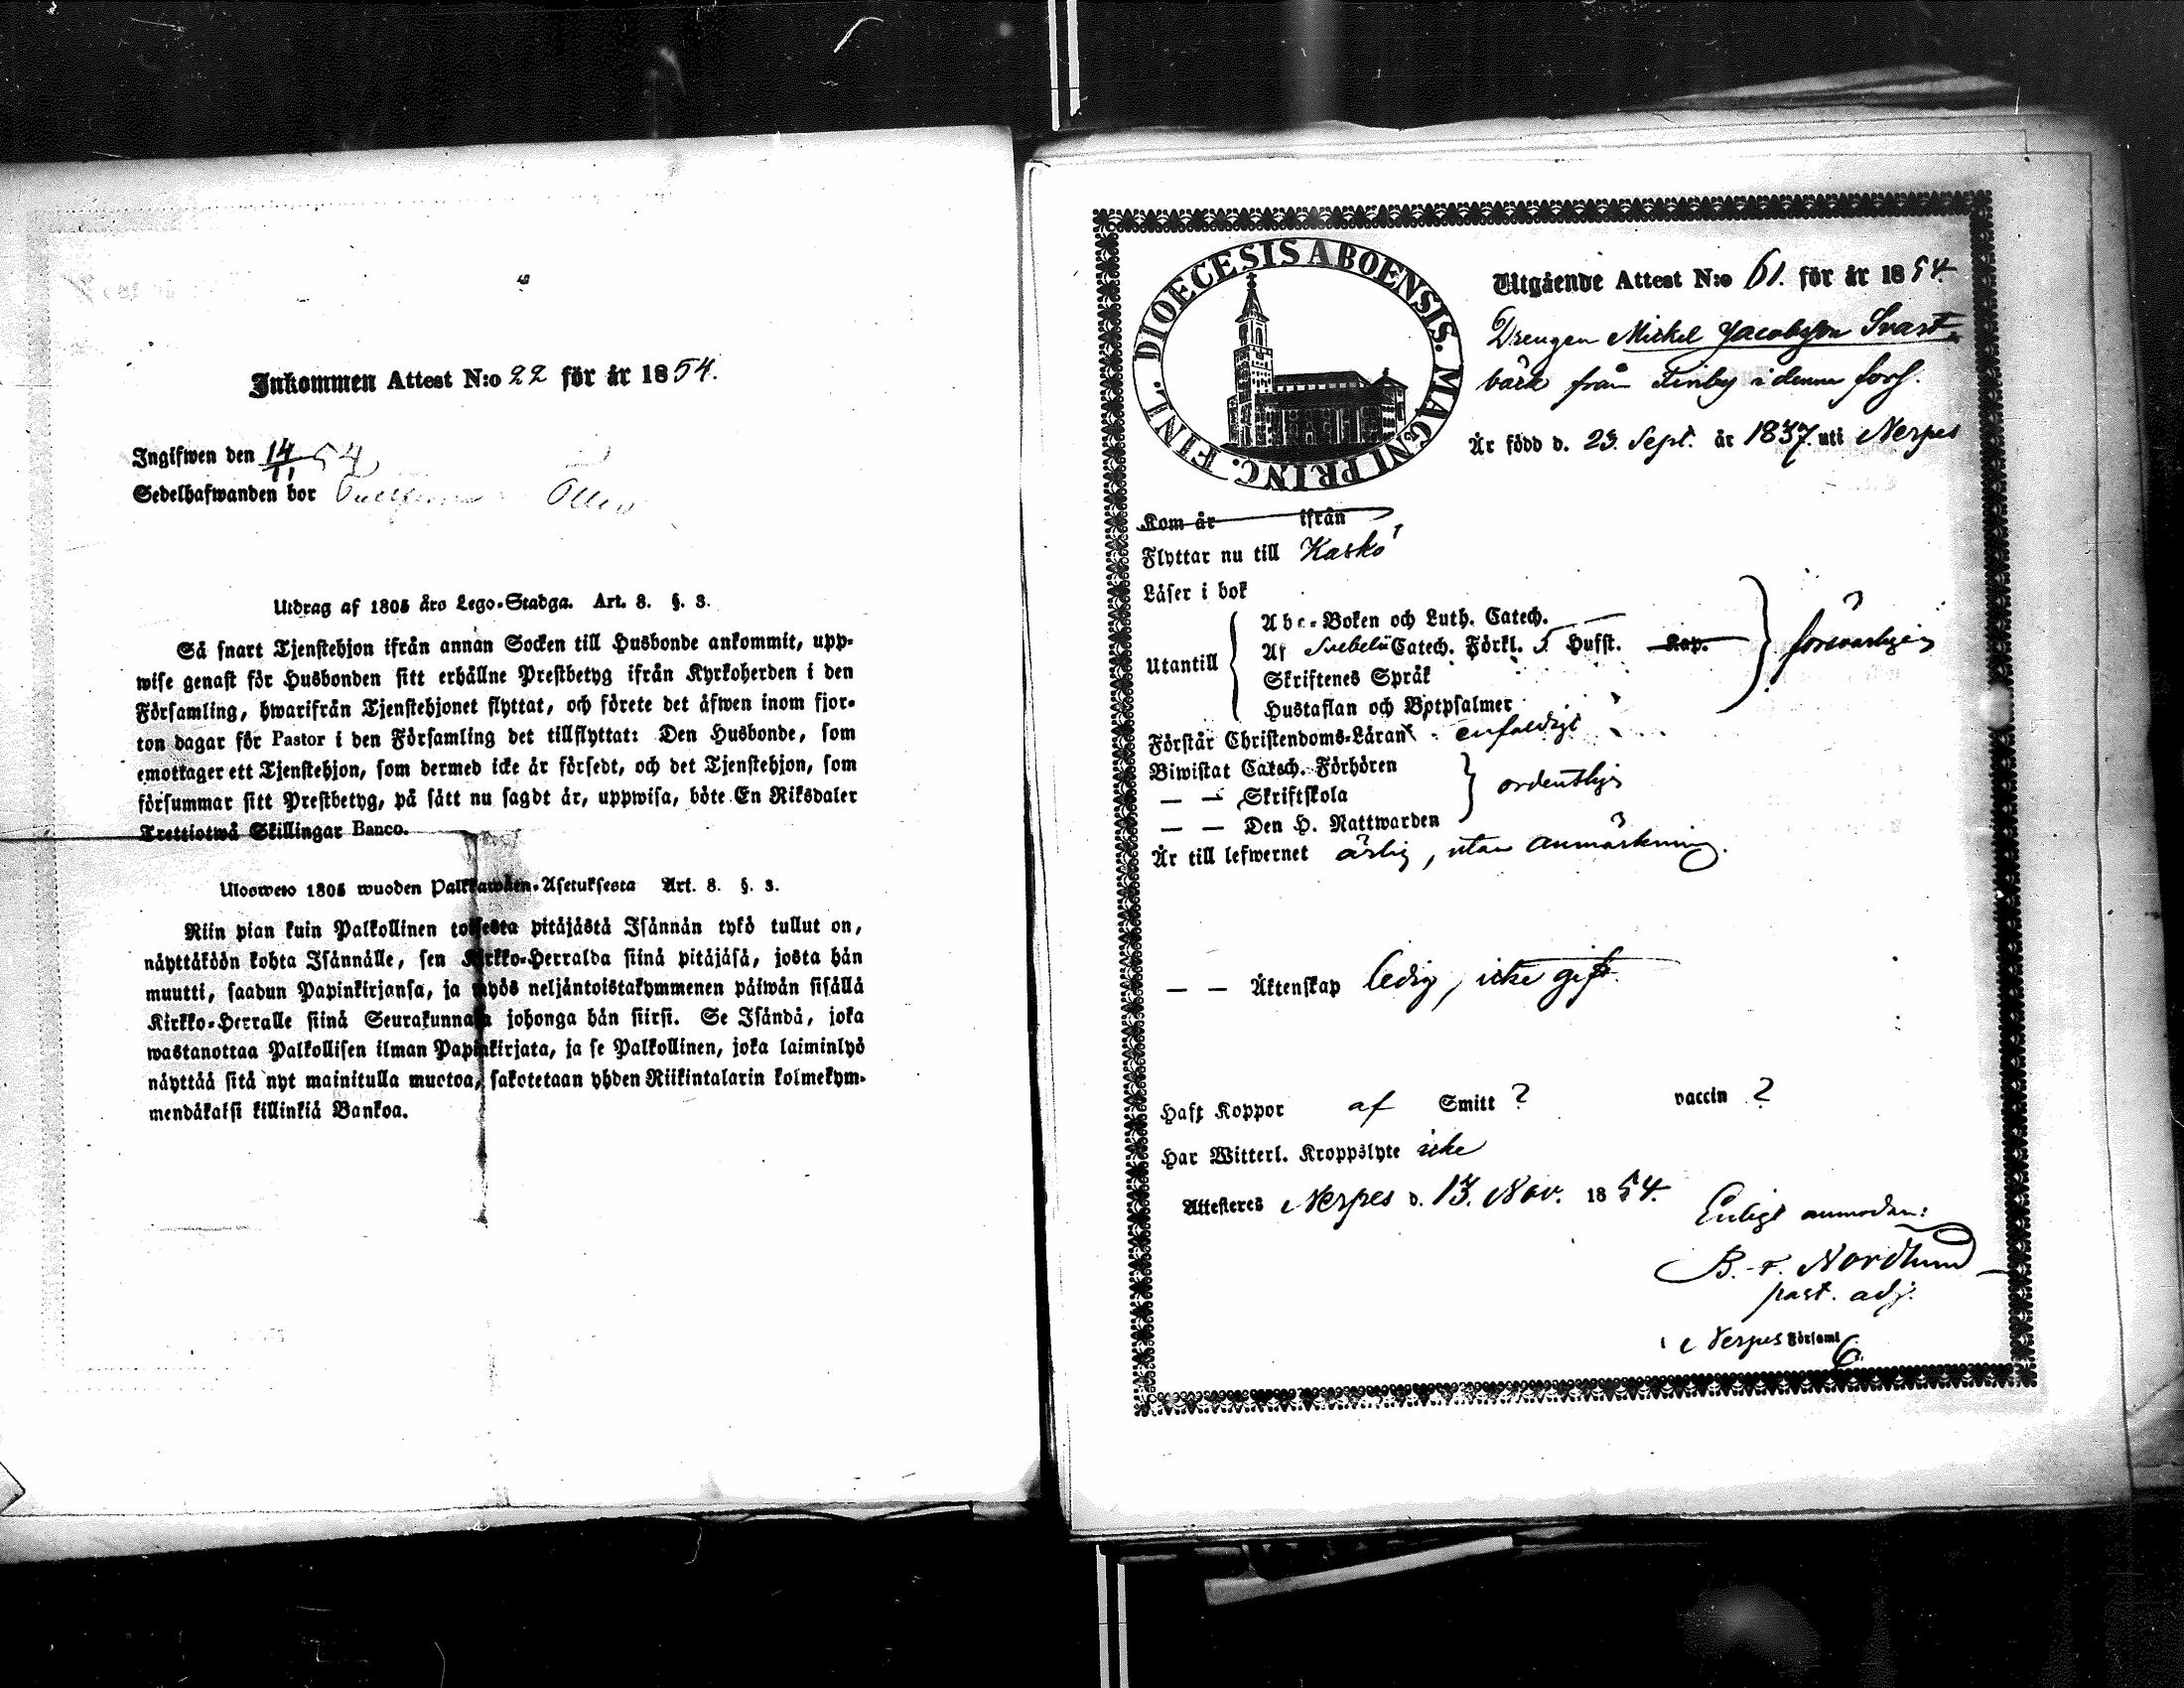 Inkommen Attest N:o 22 för år 1854.
Ingifwen den 14/11 54
Sedelhafwanden bor
Utdrag af 1805 års Lego-Stadga. Art. 8. §. 3.
Så snart Tjenstehjon ifrån annan Socken till Husbonde ankommit, upp-
wise genast för Husbonden sitt erhållne Prestbetyg ifrån Kyrkoherden i den
Församling, hwarifrån Tjenstehjonet flyttat, och förete det äfwen inom fjor-
ton dagar för Pastor i den Församling det tillflyttat: Den Husbonde, som
emottager ett Tjenstehjon, som dermed icke är försedt, och det Tjenstehjon, som
försummar sitt Prestbetyg, på sätt nu sagdt är, uppwisa, böte En Riksdaler
Trettiotwå Skillingar Banco.
Ulosweto 1805 wuoden Palkkawäen-Asetuksesta Art. 8. §. 3.
Niin pian kuin Palkollinen toisesta pitäjästä Isännän tykö tullut on,
näyttäköön kohta Isännälle, sen Kirkko-Herralda siinä pitäjäsä, josta hän
muutti, saadun Papinkirjansa, ja myös neljäntoistakymmenen päiwän sisällä
Kirkko-Herralle siinä Seurakunnasa johonga hän siirsi. Se Isändä, joka
wastanottaa Palkollisen ilman Papinkirjata, ja se Palkollinen, joka laiminlyö
näyttää sitä nyt mainitulla muotoa, sakotetaan yhden Riikintalarin kolmekym-
mendäkaksi killinkiä Bankoa.
DIOECESIS ABOENSIS. MAGNI PRINC. FINL.
Utgående Attest N:o 61. för år 1854.
Drengen Mickel Jacobsson Svart-
bäck från Finby i denna förs.
Är född d. 23. Sept. år 1837. uti Nerpes
Kom år ifrån
Flyttar nu till Kaskö
Läser i bok
Utantill
Abc-Boken och Luth. Catech.
Af Svebelii Catech. Förkl. 5 Hufst. Kap.
Skriftenes Språk
Hustaflan och Botpsalmer
försvarligen
Förstår Christendoms-Läran enfaldigt
Biwistat Catech. Förhören
— — Skriftskola
— — Den H. Nattwarden
ordentligt
Är till lefwernet ärlig, utan anmärkning.
— — Äktenskap ledig, icke gift.
Haft Koppor af Smitt ? vaccin ?
Har Witterl. Kroppslyte icke
Attesteres Nerpes d. 13. Nov. 1854.
Enligt anmodan:
B. F. Nordlund
past. adj.
i Nerpes Församl.